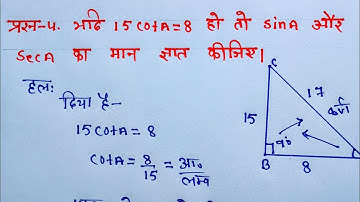 प्रश्न-4. यदि 15 cotA = 8 हो तो sinA और
SecA का मान ज्ञात कीजिए।
हल:
दिया है-
15 cotA = 8
cotA = 8/15 = आ०/लम्ब
C
15
17
कर्ण
90
B
8